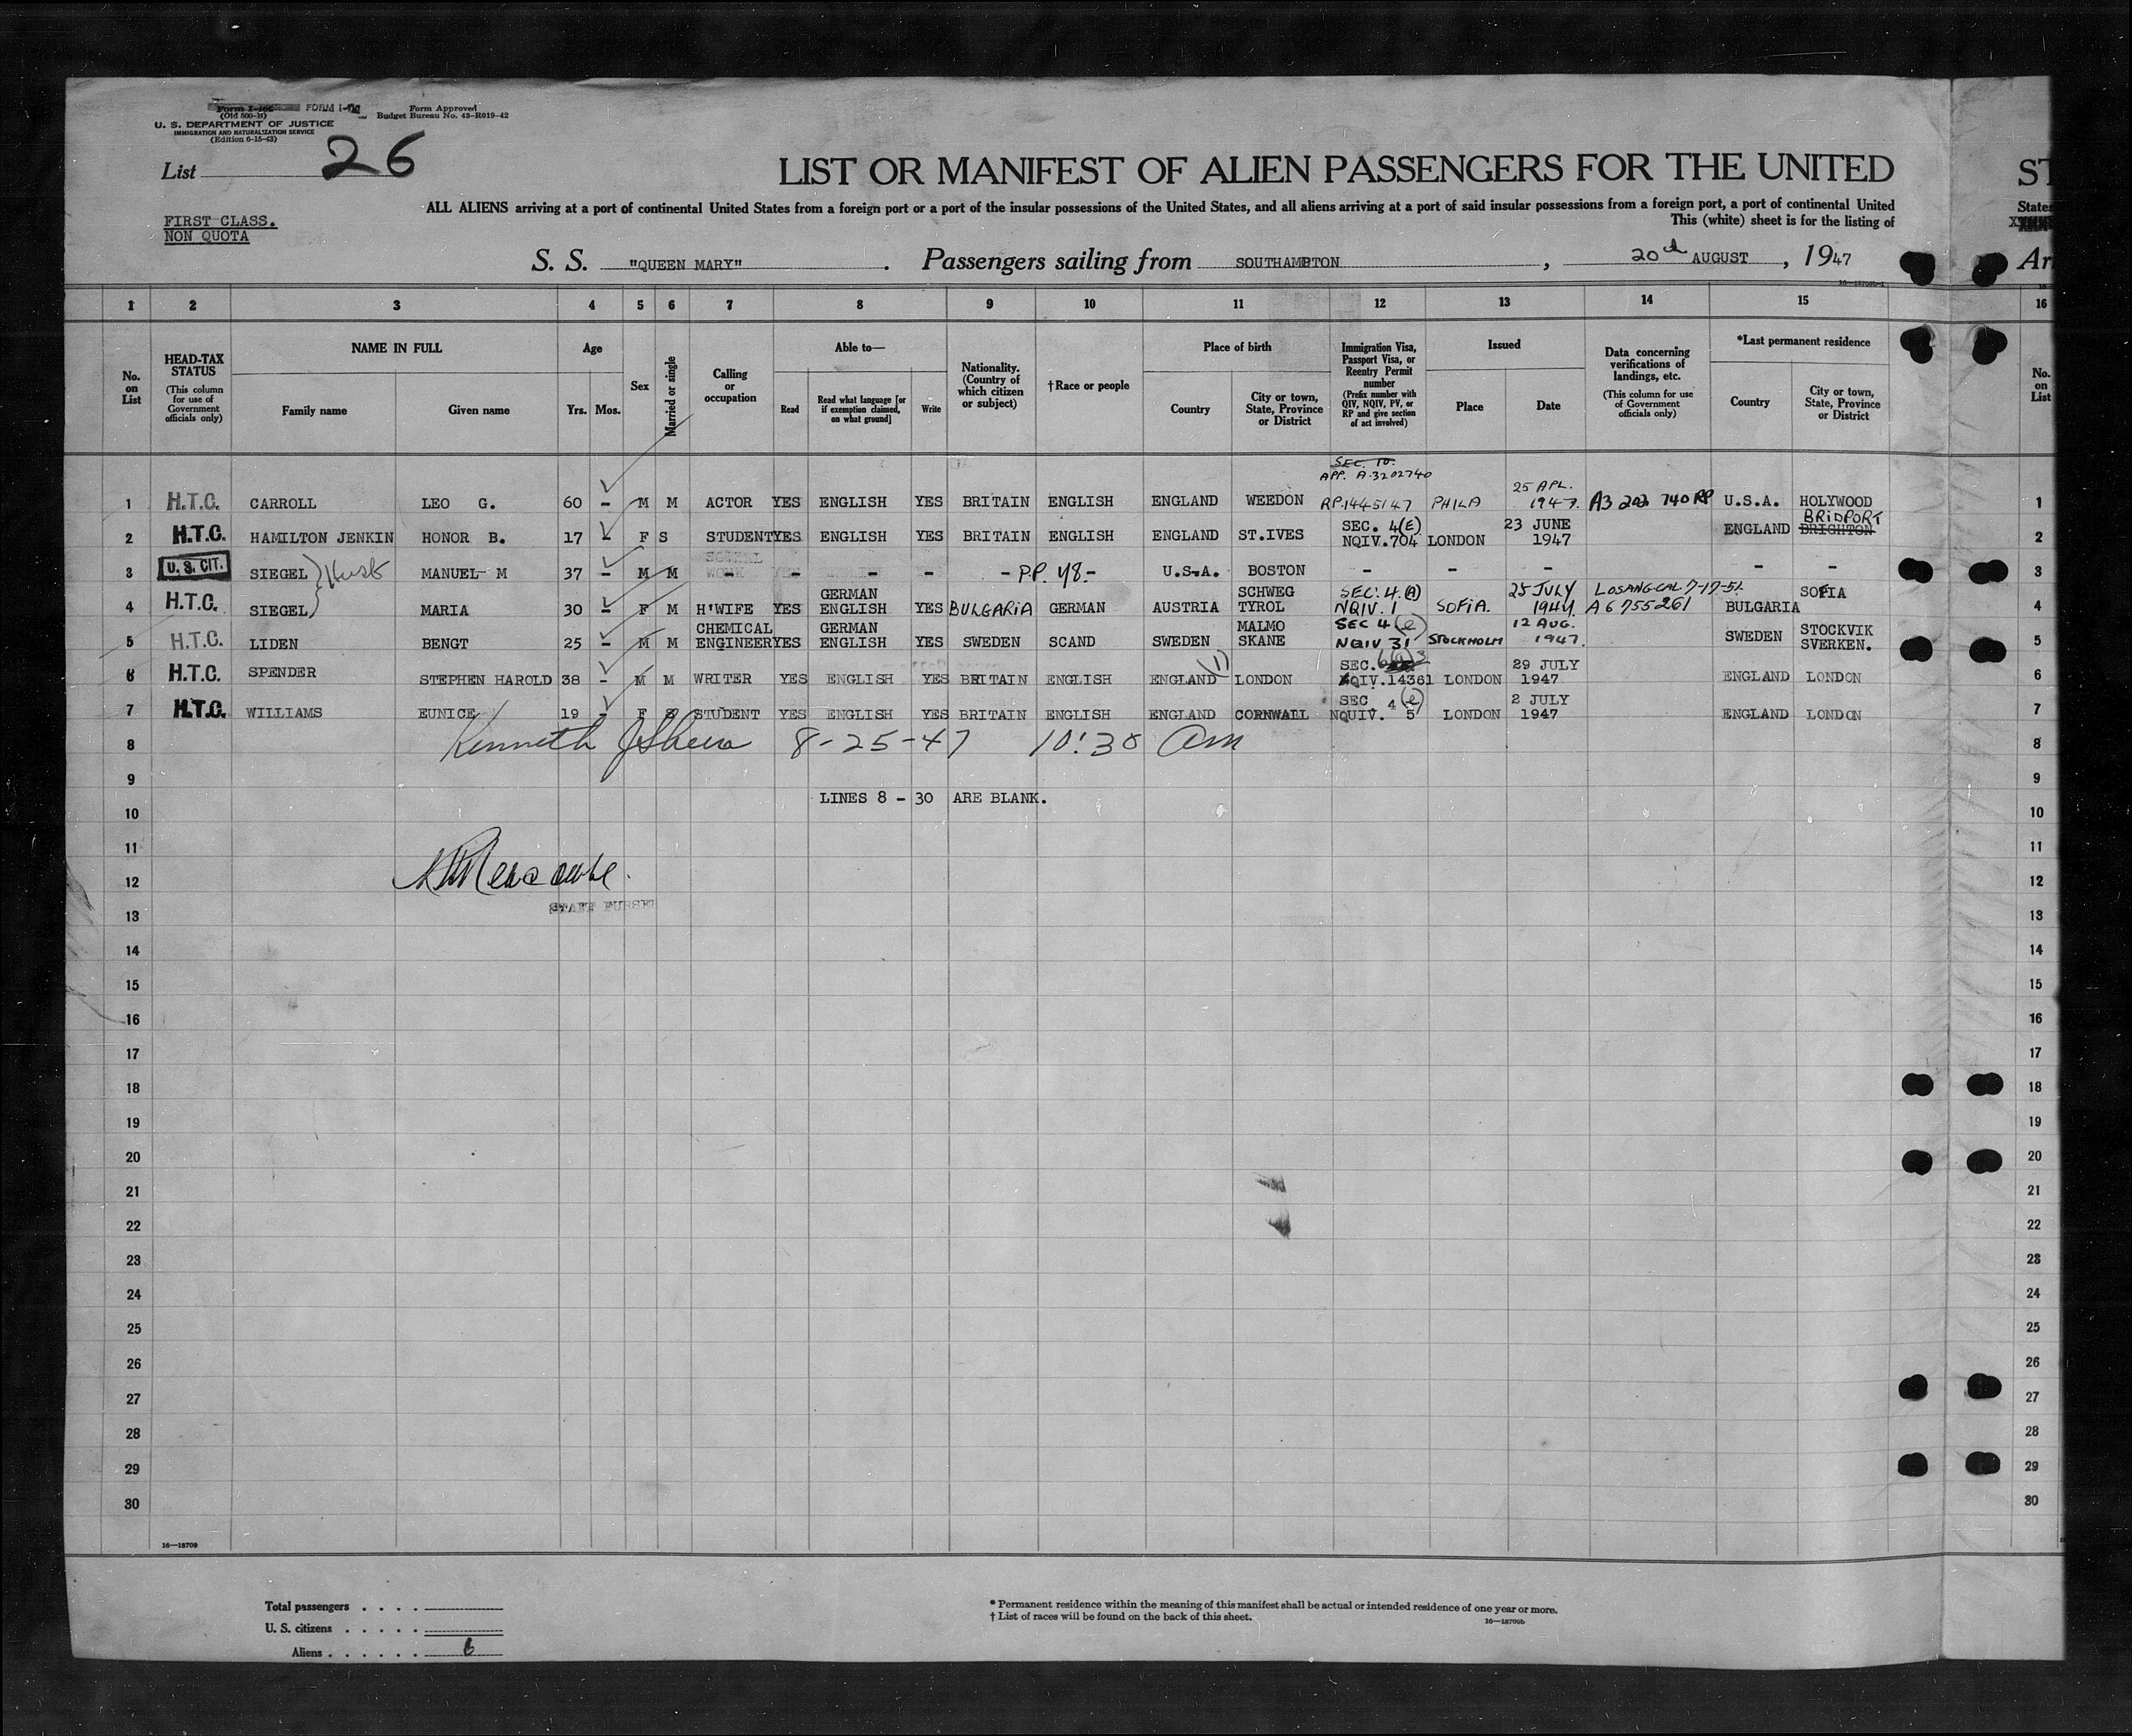 Form I-466 FORM I-
(Old 500-H)
Form Approved
Budget Bureau No. 43-R019-42
U. S. DEPARTMENT OF JUSTICE
IMMIGRATION AND NATURALIZATION SERVICE
(Edition 6-15-43)
List 26
LIST OR MANIFEST OF ALIEN PASSENGERS FOR THE UNITED ST
ALL ALIENS arriving at a port of continental United States from a foreign port or a port of the insular possessions of the United States, and all aliens arriving at a port of said insular possessions from a foreign port, a port of continental United States
FIRST CLASS.
NON QUOTA
This (white) sheet is for the listing of
S. S. "QUEEN MARY" . Passengers sailing from SOUTHAMPTON , 20th AUGUST , 1947 Ar
1 2 3 4 5 6 7 8 9 10 11 12 13 14 15 16
No. on List
HEAD-TAX STATUS
(This column for use of Government officials only)
NAME IN FULL
Family name
Given name
Age
Yrs. Mos.
Sex
Married or single
Calling or occupation
Able to—
Read
Read what language [or if exemption claimed, on what ground]
Write
Nationality. (Country of which citizen or subject)
†Race or people
Place of birth
Country
City or town, State, Province or District
Immigration Visa, Passport Visa, or Reentry Permit number
(Prefix number with QIV, NQIV, PV, or RP and give section of act involved)
Issued
Place
Date
Data concerning verifications of landings, etc.
(This column for use of Government officials only)
*Last permanent residence
Country
City or town, State, Province or District
No. on List
SEC. 10.
APP. A.3202740
25 APL.
1 H.T.C. CARROLL LEO G. 60 - M M ACTOR YES ENGLISH YES BRITAIN ENGLISH ENGLAND WEEDON RP.1445147 PHILA 1947. A3 202 740 RP U.S.A. HOLYWOOD 1
SEC. 4(E) 23 JUNE BRIDPORT
2 H.T.C. HAMILTON JENKIN HONOR B. 17 - F S STUDENT YES ENGLISH YES BRITAIN ENGLISH ENGLAND ST.IVES NQIV.704 LONDON 1947 ENGLAND BRIGHTON 2
3 U. S. CIT. SIEGEL Husb MANUEL M 37 - M M - - - - - P.P. 48. - U.S.A. BOSTON - - - - - 3
GERMAN SCHWEG SEC. 4.(A) 25 JULY LOSANG CAL 7-17-51. SOFIA
4 H.T.C. SIEGEL MARIA 30 - F M H'WIFE YES ENGLISH YES BULGARIA GERMAN AUSTRIA TYROL NQIV. 1 SOFIA. 1947. A6755261 BULGARIA 4
CHEMICAL GERMAN MALMO SEC 4 (e) 12 AUG. STOCKVIK
5 H.T.C. LIDEN BENGT 25 - M M ENGINEER YES ENGLISH YES SWEDEN SCAND SWEDEN SKANE NQIV 31 STOCKHOLM 1947. SWEDEN SVERKEN. 5
SEC. 29 JULY
6 H.T.C. SPENDER STEPHEN HAROLD 38 - M M WRITER YES ENGLISH YES BRITAIN ENGLISH ENGLAND LONDON QIV.14361 LONDON 1947 ENGLAND LONDON 6
SEC. 4 (e) 2 JULY
7 H.T.C. WILLIAMS EUNICE 19 - F S STUDENT YES ENGLISH YES BRITAIN ENGLISH ENGLAND CORNWALL NQUIV. 5 LONDON 1947 ENGLAND LONDON 7
8 Kenneth J Shea 8-25-47 10:30 am 8
9 9
LINES 8 - 30 ARE BLANK.
10 10
11 11
12 12
STAFF PURSER
13 13
14 14
15 15
16 16
17 17
18 18
19 19
20 20
21 21
22 22
23 23
24 24
25 25
26 26
27 27
28 28
29 29
30 30
16—18709
Total passengers . . . .
U. S. citizens . . . . .
Aliens . . . . . . 6
* Permanent residence within the meaning of this manifest shall be actual or intended residence of one year or more.
† List of races will be found on the back of this sheet.
16—18709b